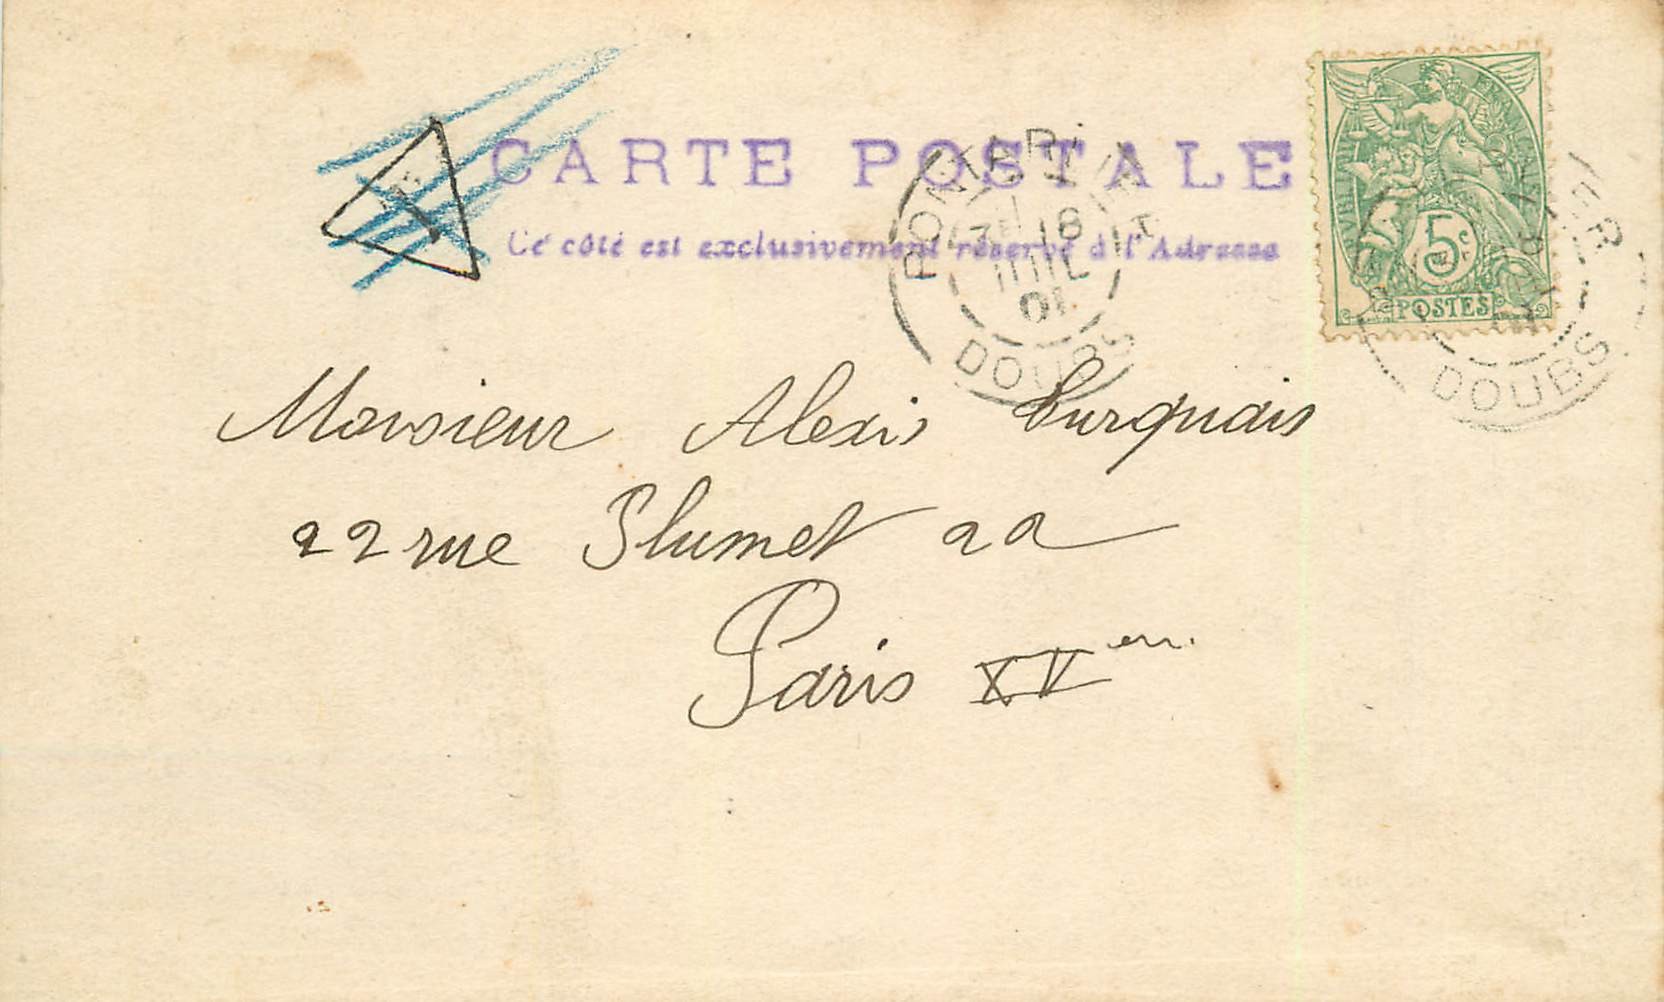 CARTE POSTALE
Ce côté est exclusivement réservé à l'Adresse
T
PONTARLIER
18
JUIL
01
DOUBS
5c
POSTES
DOUBS
Monsieur Alexis Turquais
22 rue Plumet 22
Paris XVem.